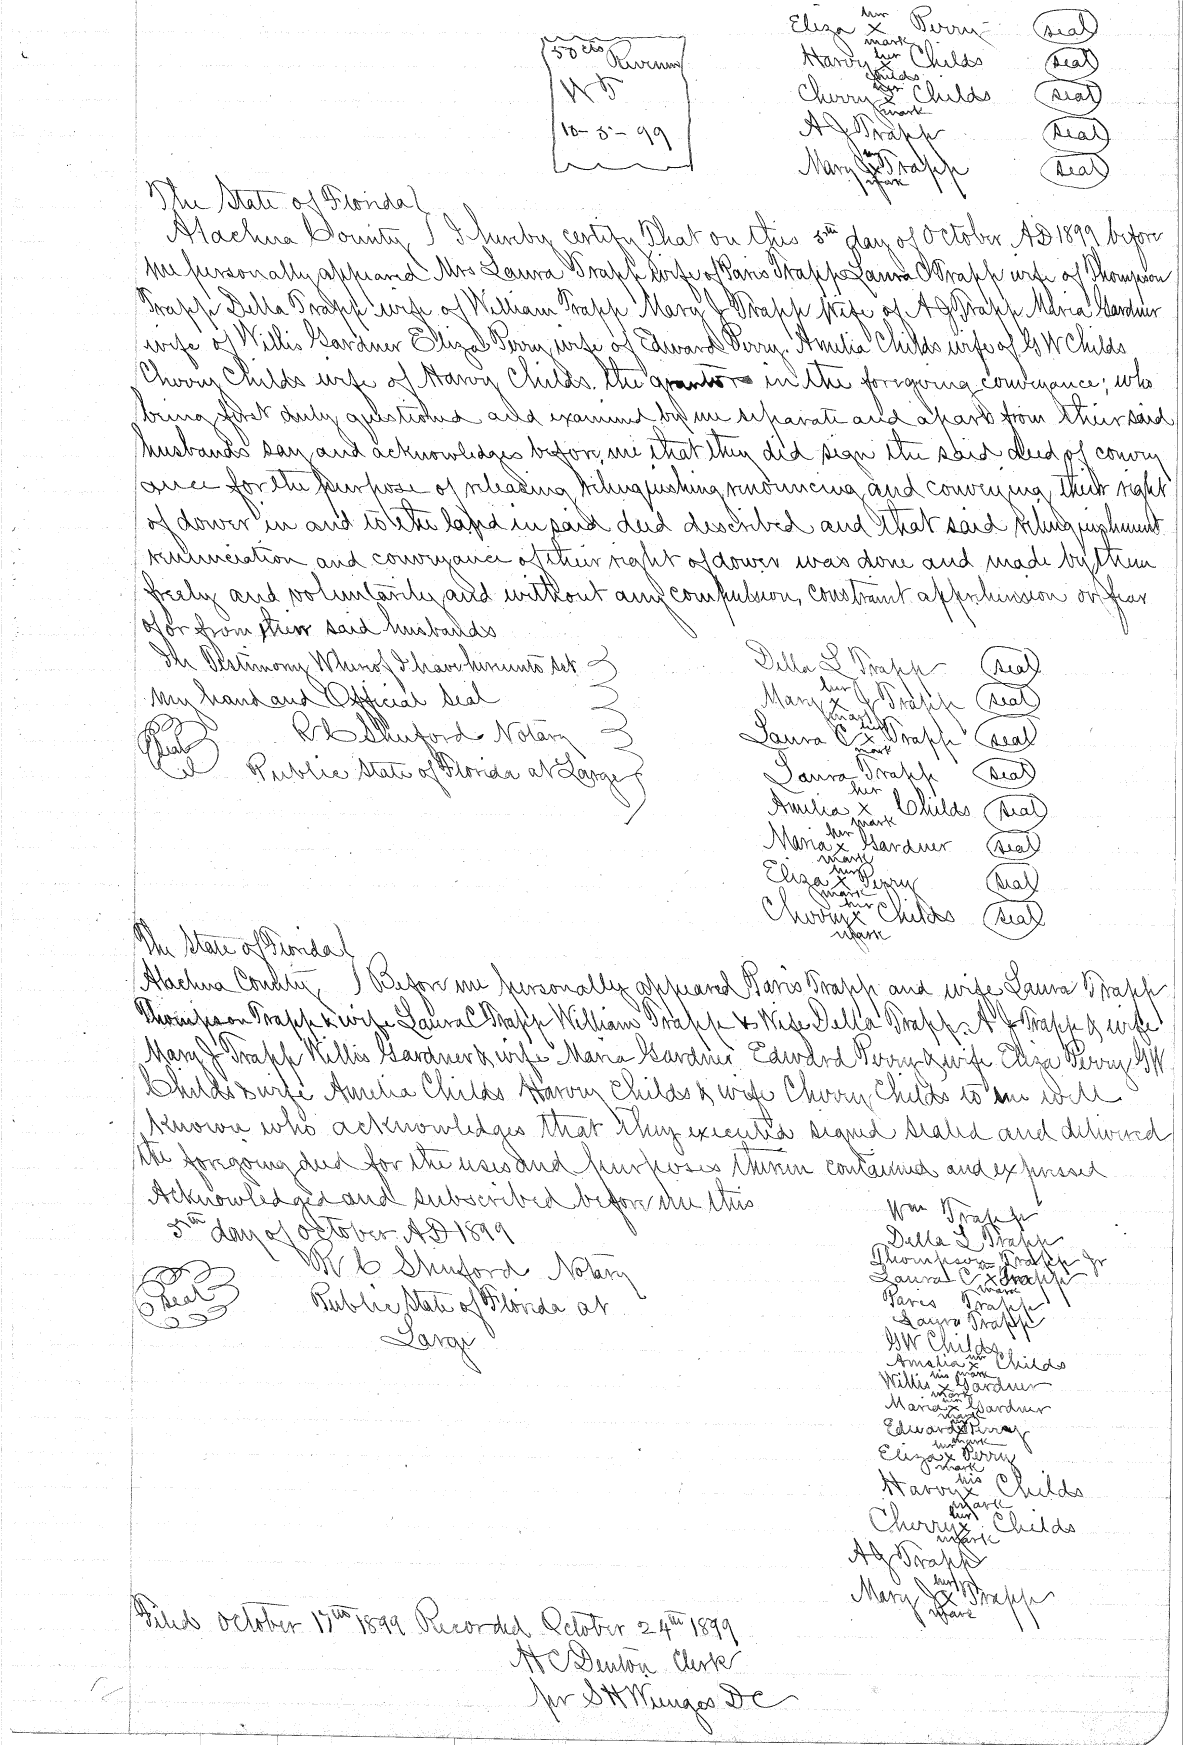 her
Eliza x Perry seal
mark
50 cts Revenue
her
Harvy x Childs seal
Childs
her
Cherry x Childs seal
mark
10-5-99
A J Trapp seal
her
Mary J x Trapp seal
mark
The State of Florida
Alachua County I hereby certify That on this 5th day of October AD 1899 before
me personally appeared Mrs Laura Trapp wife of Paris Trapp Laura C Trapp wife of Thompson
Trapp Della Trapp wife of William Trapp Mary J Trapp wife of A J Trapp Maria Gardner
wife of Willis Gardner Eliza Perry wife of Edward Perry. Amelia Childs wife of G W Childs
Cherry Childs wife of Harvy Childs. the grantors in the foregoing conveyance; who
being first duly questioned and examined by me separate and apart from their said
husbands say and acknowledges before me that they did sign the said deed of convey
ance for the purpose of releasing, relinquishing, renouncing, and conveying their right
of dower in and to the land in said deed described and that said relinquishment
renunciation and conveyance of their right of dower was done and made by them
freely and voluntarily and without any compulsion, constraint apprehension or fear
of or from their said husbands
In Testimony Whereof I have hereunto set
my hand and Official Seal
Seal R C Shuford Notary
Public State of Florida at Large
Della L Trapp seal
her
Mary x J Trapp seal
mark
her
Laura C x Trapp seal
mark
Laura Trapp seal
her
Amelia x Childs seal
mark
her
Maria x Gardner seal
mark
her
Eliza x Perry seal
mark
her
Cherry x Childs seal
mark
The State of Florida
Alachua County Before me personally appeared Paris Trapp and wife Laura Trapp
Thompson Trapp & wife Laura C Trapp William Trapp & Wife Della Trapp. A J Trapp & wife
Mary J Trapp Willis Gardner & wife Maria Gardner Edward Perry & wife Eliza Perry G W
Childs & wife Amelia Childs Harvy Childs & wife Cherry Childs to me well
known who acknowledges that they executed signed sealed and delivered
the foregoing deed for the uses and purposes therein contained and expressed
Acknowledged and subscribed before me this
5th day of October AD 1899
Seal R C Shuford Notary
Public State of Florida at
Large
Wm Trapp
Della L Trapp
Thompson Trapp Jr
Laura C x Trapp
mark
Paris Trapp
Laura Trapp
G W Childs
her
Amelia x Childs
his mark
Willis x Gardner
mark
her
Maria x Gardner
mark
Edward x Perry
mark
her
Eliza x Perry
mark
his
Harvy x Childs
mark
her
Cherry x Childs
mark
A J Trapp
her
Mary J x Trapp
mark
Filed October 17th 1899 Recorded October 24th 1899
H C Denton Clerk
per S H Wienges D C